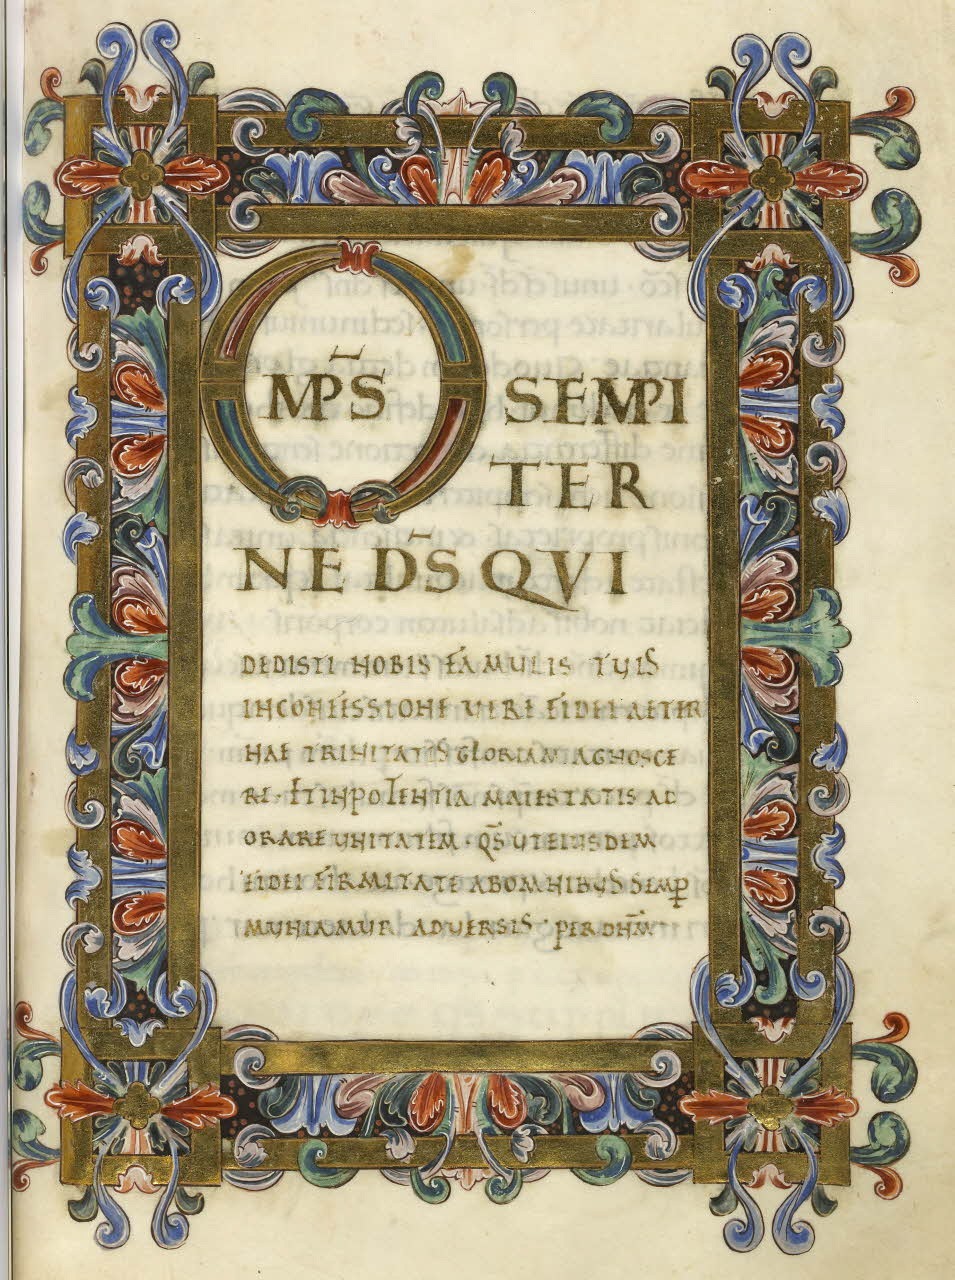 OMP̄S SEMPI
TER
NE D̄S QVI
DEDISTI NOBIS FAMULIS TUIS
IN CONFESSIONE VERE FIDEI AETER
NAE TRINITATIS GLORIAM AGNOSCE
RE · ET IN POTENTIA MAIESTATIS AD
ORARE UNITATEM · QS̄ UT EIUSDEM
FIDEI FIRMITATE AB OMNIBUS SEMꝑ
MUNIAMUR ADVERSIS · PER DN̄M